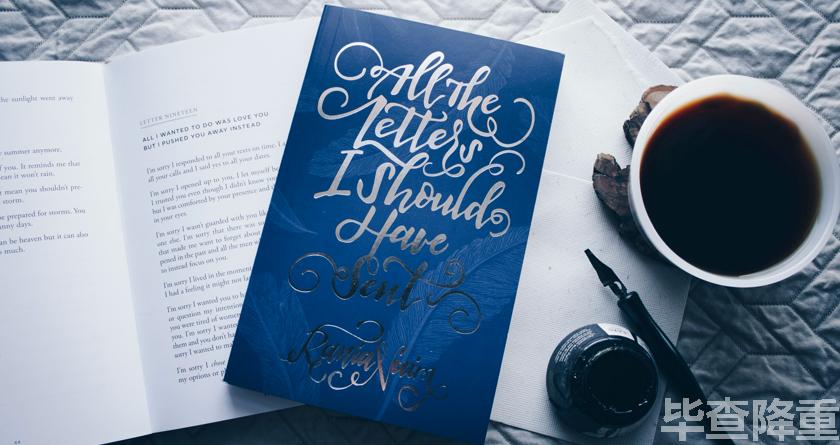 the sunlight went away
summer anymore.
f you. It reminds me that
ean it won't rain.
mean you shouldn't pre-
t storm.
be prepared for storms. You
unny days.
an be heaven but it can also
much.
64
LETTER NINETEEN
ALL I WANTED TO DO WAS LOVE YOU
BUT I PUSHED YOU AWAY INSTEAD
I'm sorry I responded to all your texts on time. I
all your calls and I said yes to all your dates.
I'm sorry I opened up to you, I let myself be
I trusted you even though I didn't know you
but I was comforted by your presence and th
in your eyes.
I'm sorry I wasn't guarded with you lik
one else. I'm sorry that there was so
that made me want to forget about
pened in the past and all the men w
to instead focus on you.
I'm sorry I lived in the momen
I had a feeling it might not las
I'm sorry I wanted you to b
or question my intention
you were tired of women
them and you don't ha
sorry I wanted to ma
I'm sorry I chose
my options or p
All The
Letters
I Should
Have
Sent
Rania Naim
毕查降重